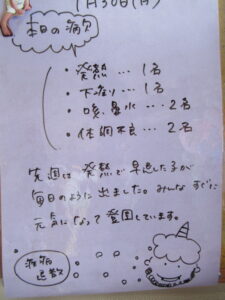 1月30日(月)
本日の病欠
・発熱 … 1名
・下痢り … 1名
・咳、鼻水 … 2名
・体調不良 … 2名
先週は 発熱で 早退した子が
毎日のように 出ました。みんな すぐに
元気になって 登園しています。
疾病
退散